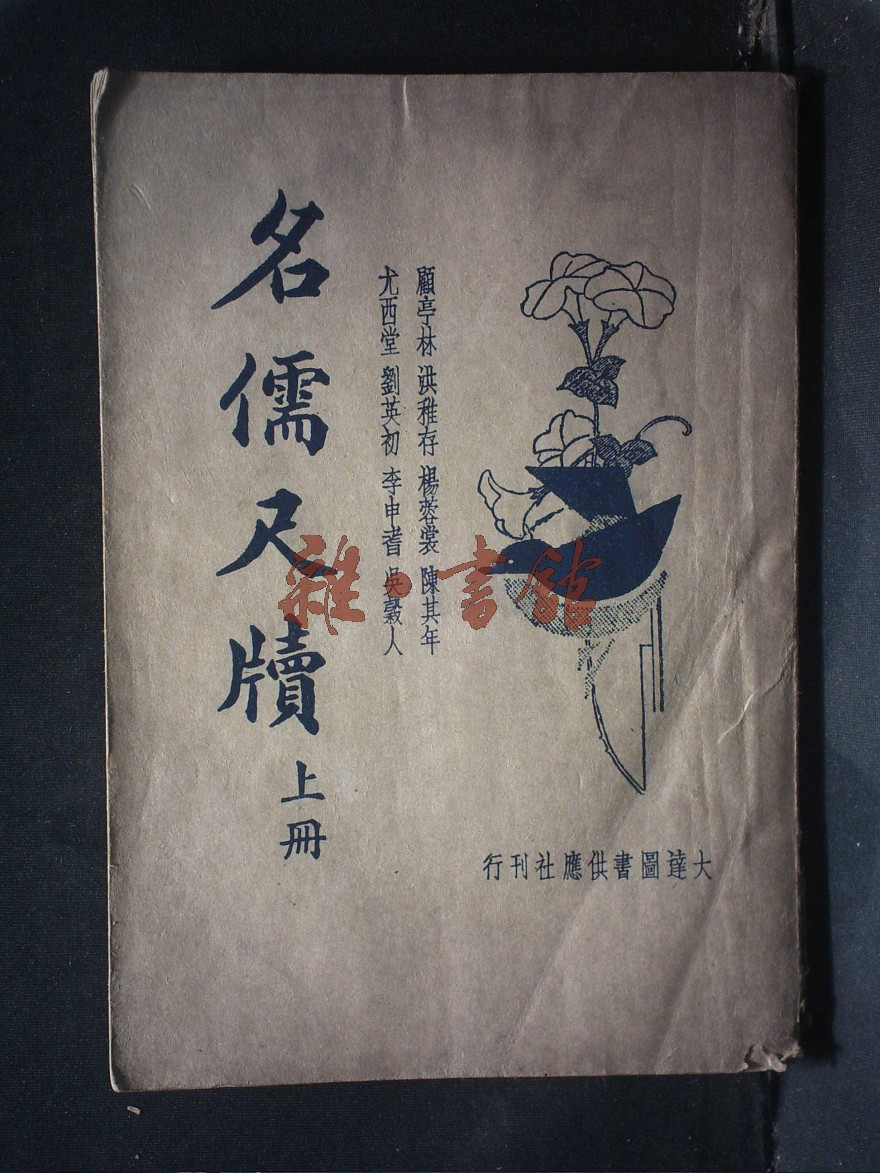 名儒尺牘
上冊
顧亭林 洪稚存 楊蓉裳 陳其年
尤西堂 劉英初 李申耆 吳穀人
大達圖書供應社刊行
雜·書館